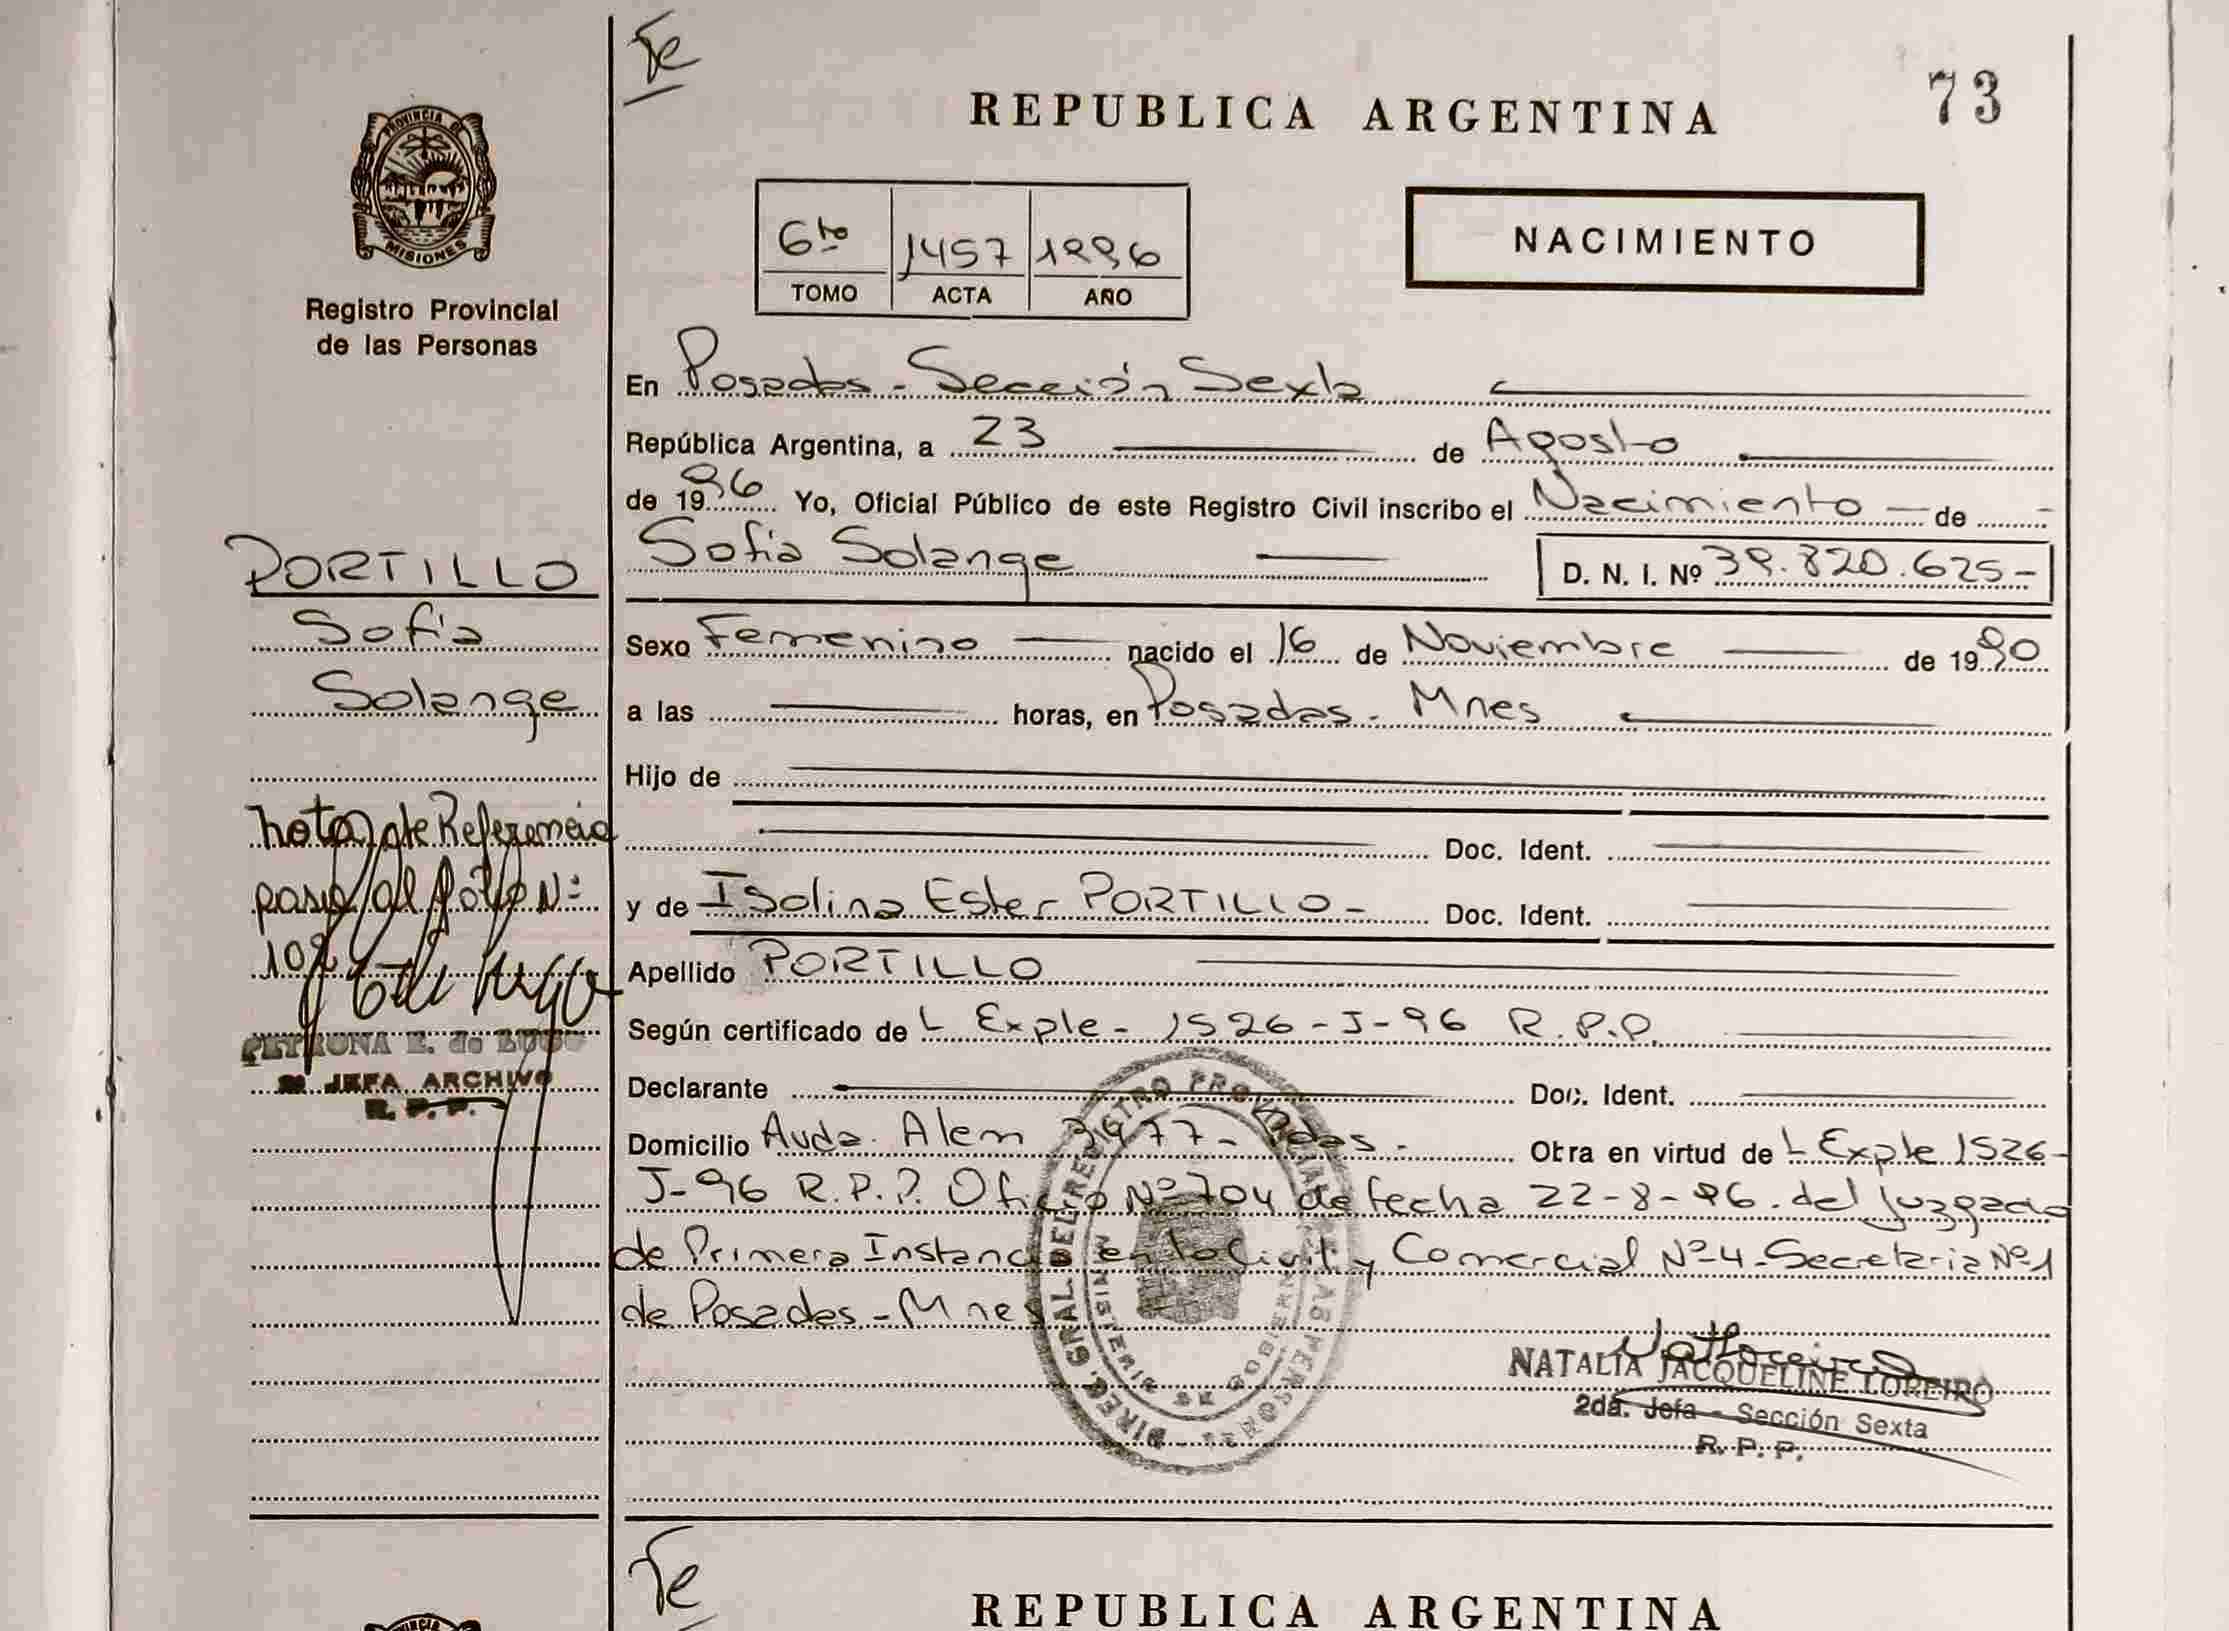 Fe
REPUBLICA ARGENTINA
73
PROVINCIA DE
MISIONES
Registro Provincial
de las Personas
6to 1457 1996
TOMO ACTA AÑO
NACIMIENTO
En Posadas - Sección Sexta
República Argentina, a 23 de Agosto
de 1996 Yo, Oficial Público de este Registro Civil inscribo el Nacimiento de
Sofia Solange D. N. I. Nº 39.820.625-
PORTILLO
Sofia
Solange
Sexo Femenino nacido el 16 de Noviembre de 1990
a las horas, en Posadas - Mnes
Hijo de
Doc. Ident.
y de Isolina Ester PORTILLO - Doc. Ident.
Apellido PORTILLO
Según certificado de L Exple - 1526 - J - 96 R.P.P.
Declarante Doc. Ident.
Domicilio Avda. Alem 3977 - Pdas - Otra en virtud de L Exple 1526 -
J-96 R.P.P. Oficio Nº 704 de fecha 22-8-96. del juzgado
de Primera Instancia en lo Civil y Comercial Nº 4 - Secretaria Nº 1
de Posadas - Mnes
Nota de Referencia
pasa al folio Nº
PETRONA E. de LUGO
JEFA ARCHIVO
R. P. P.
DIREC. GRAL. DEL REGISTRO PROVINCIAL DE LAS PERSONAS
MINISTERIO DE GOBIERNO
NATALIA JACQUELINE LOREIRO
2da. Jefa - Sección Sexta
R. P. P.
Fe
REPUBLICA ARGENTINA